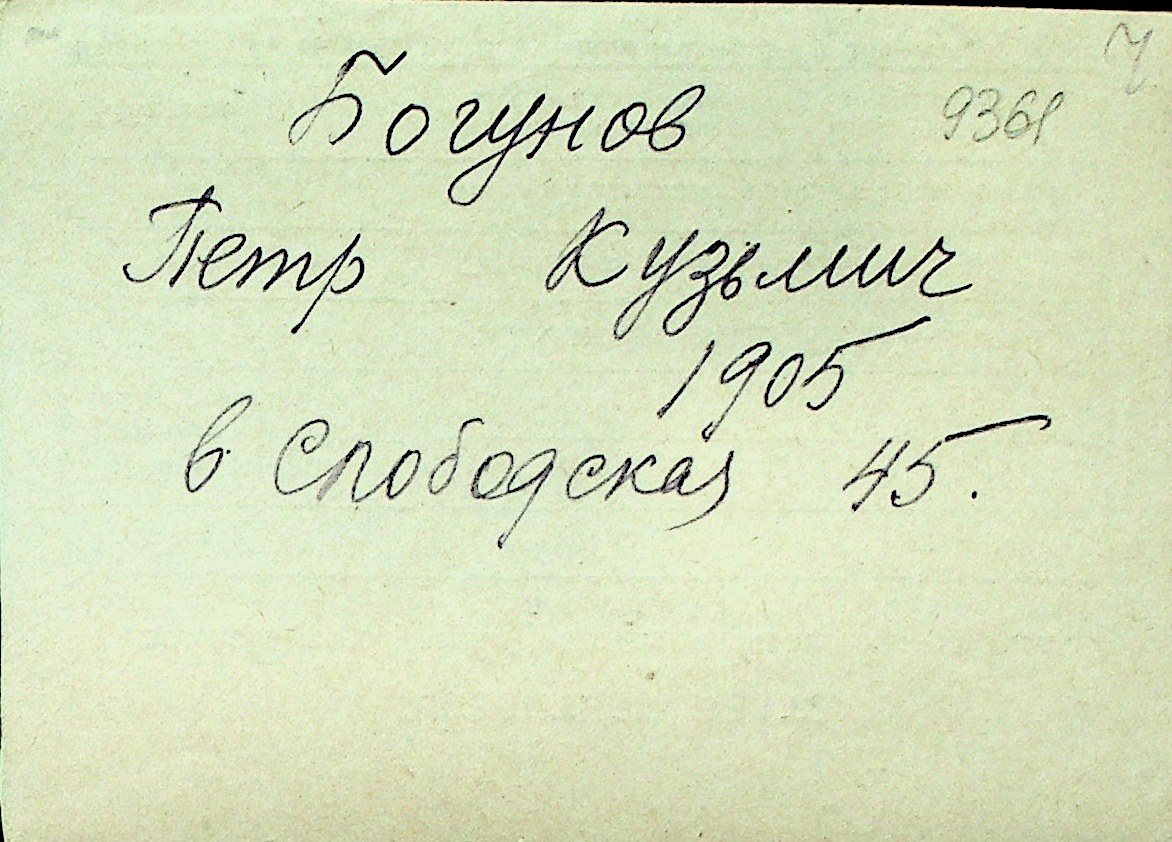 Богунов
9361
Петр Кузьмич
1905
в. Слободская 45.